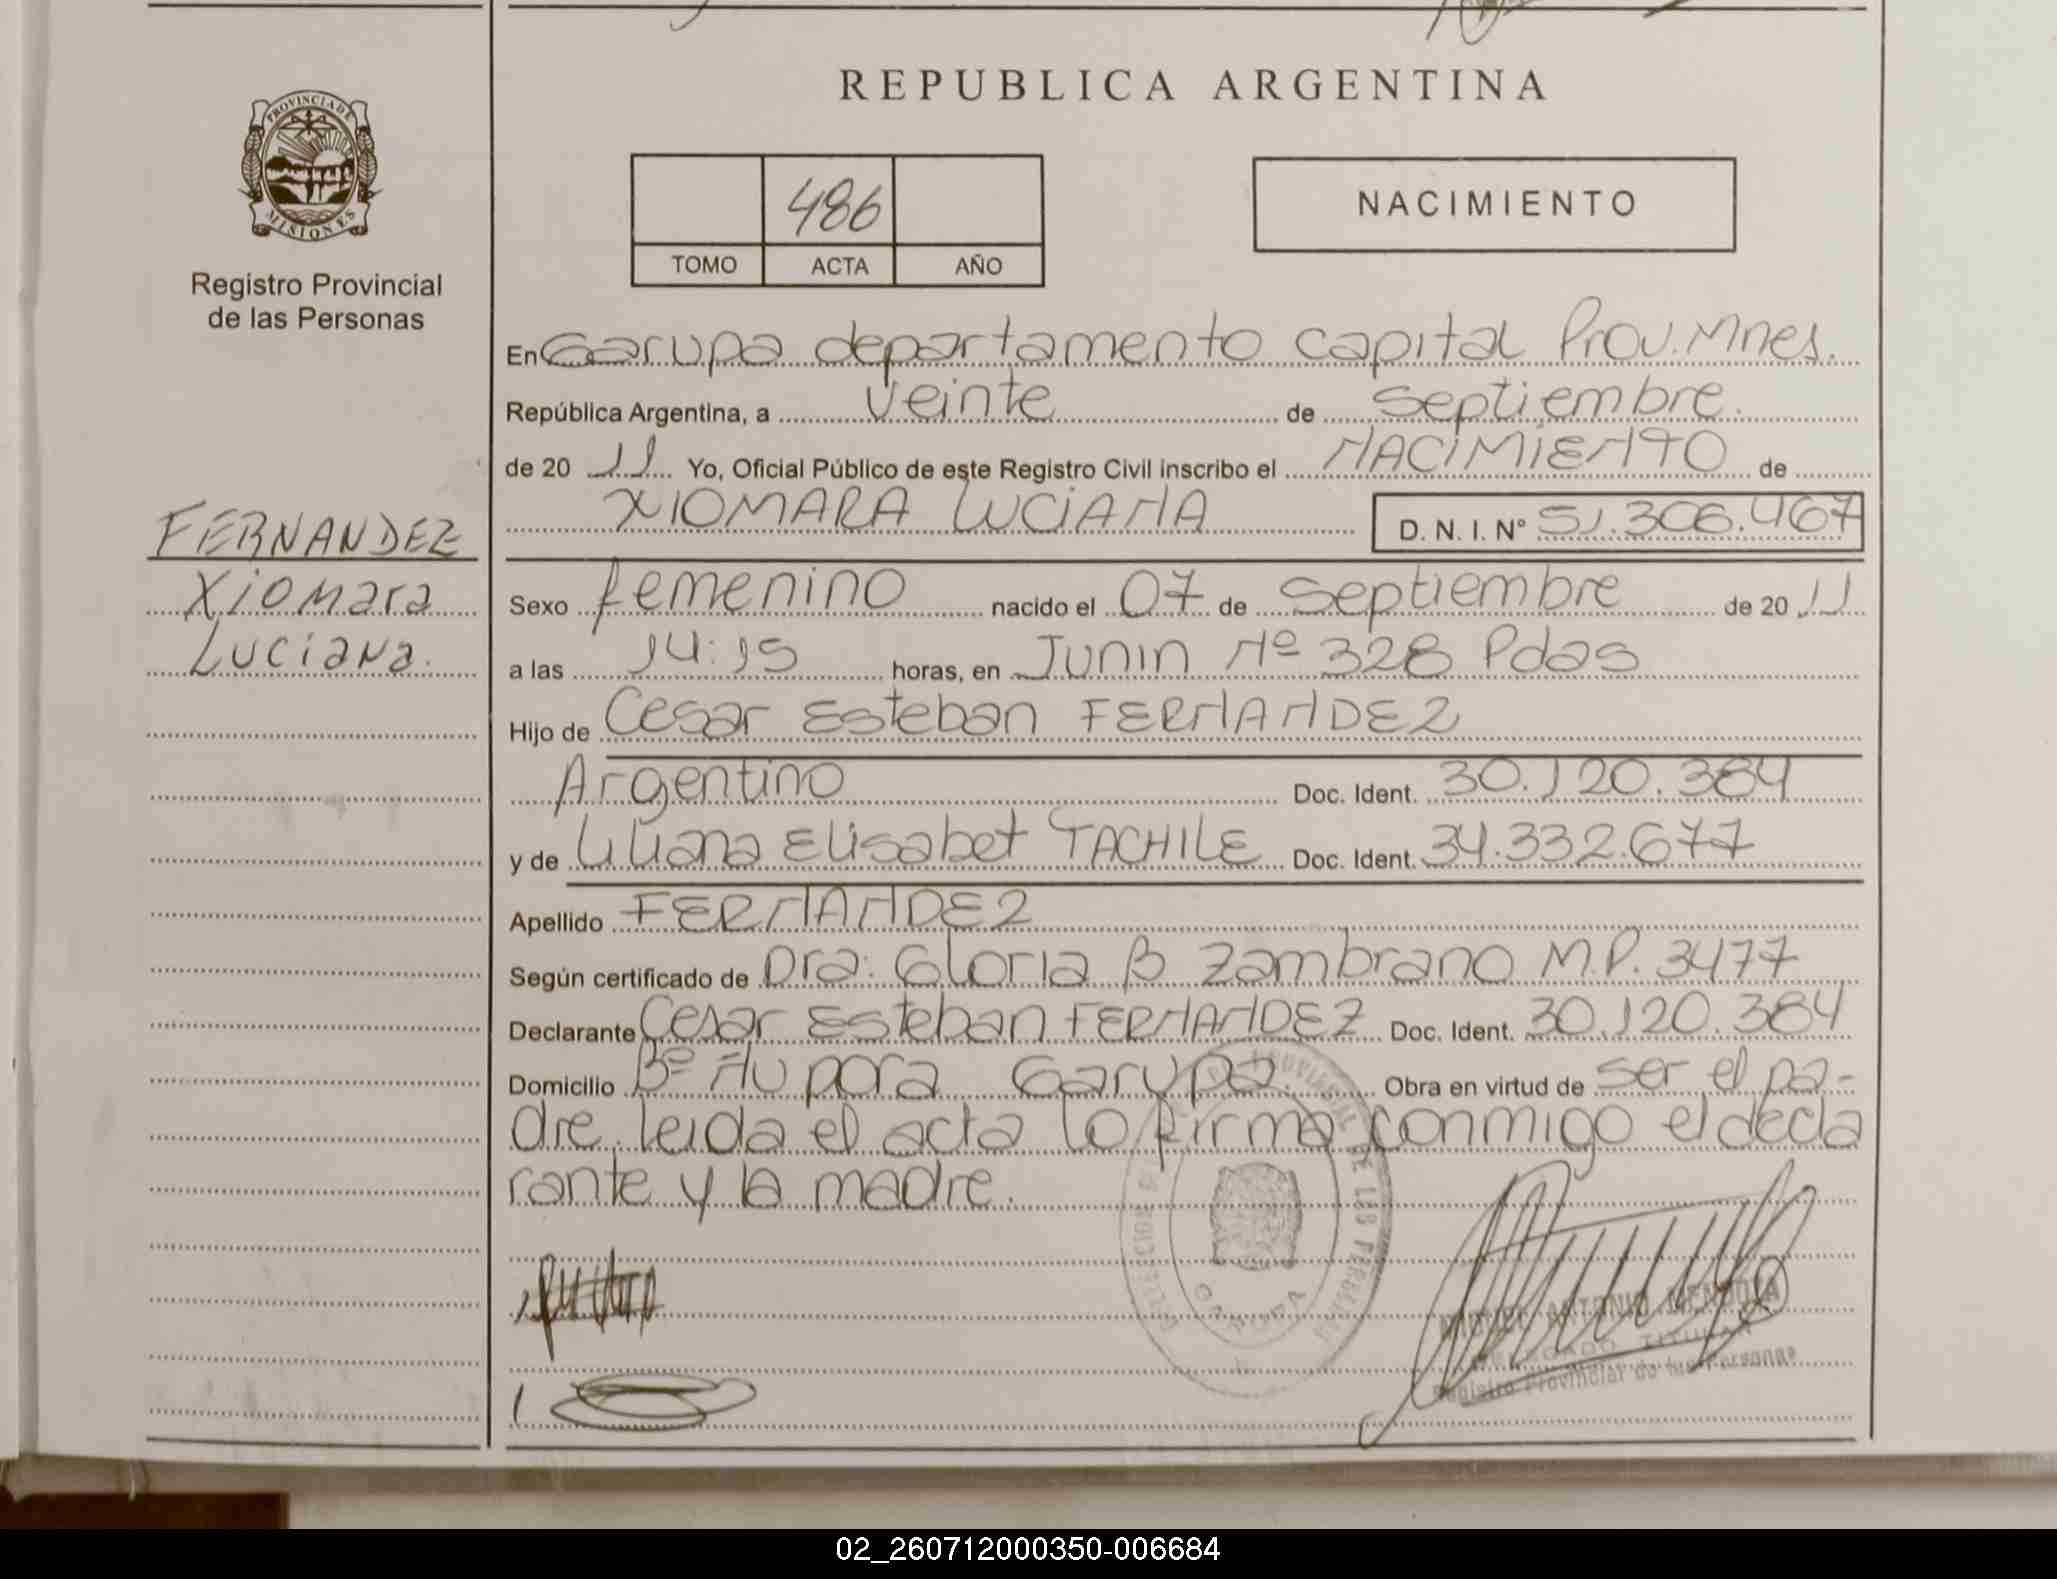 PROVINCIA DE
MISIONES
Registro Provincial
de las Personas
FERNANDEZ
Xiomara
Luciana.
REPUBLICA ARGENTINA
486
TOMO ACTA AÑO
NACIMIENTO
En Garupa departamento capital Prov. Mnes.
República Argentina, a veinte de septiembre.
de 20 11 Yo, Oficial Público de este Registro Civil inscribo el NACIMIENTO de
XIOMARA LUCIANA D. N. I. N° 51.306.467
Sexo femenino nacido el 07 de septiembre de 20 11
a las 14:15 horas, en Junin Nº 328 Pdas
Hijo de Cesar Esteban FERNANDEZ
Argentino Doc. Ident. 30.120.384
y de Liliana Elisabet TACHILE Doc. Ident. 34.332.677
Apellido FERNANDEZ
Según certificado de Dra: Gloria B Zambrano M.P. 3477
Declarante Cesar Esteban FERNANDEZ Doc. Ident. 30.120.384
Domicilio Bº Ñu pora Garupa. Obra en virtud de ser el pa-
dre. leida el acta lo firma conmigo el decla
rante y la madre.
PROVINCIAL DE LAS PERSONAS
GARUPA
MIGUEL ANTONIO MENDOZA
DELEGADO TITULAR
Registro Provincial de las Personas
02_260712000350-006684